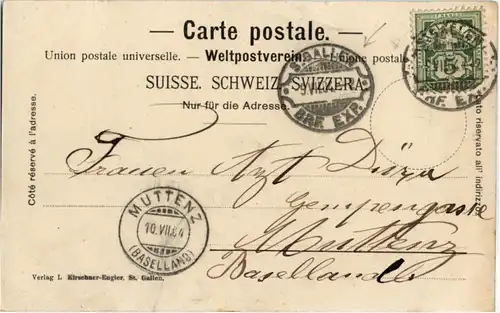 Carte postale.
Union postale universelle. — Weltpostverein. — Unione postale
SUISSE. SCHWEIZ. SVIZZERA.
Nur für die Adresse.
Côté réservé à l'adresse.
lato riservato all' indirizzo.
ST. GALLEN
VII.04
BRF. EXP.
BRF. EXP.
5
Frauen Arzt
Gempengasse
Muttenz
Baselland
MUTTENZ
10.VII.04
(BASELLAND)
Verlag L. Kirschner-Engler, St. Gallen.